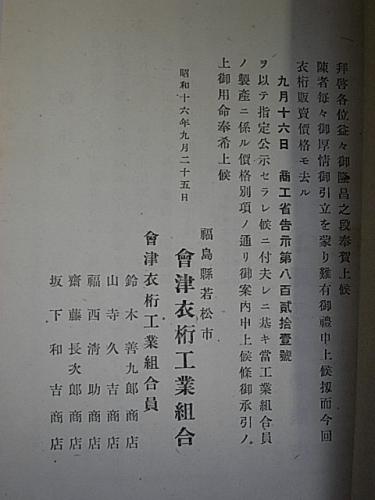 拜啓各位益々御隆昌之段奉賀上候
陳者毎々御厚情御引立を蒙り難有御禮申上候扨而今回
衣桁販賣價格モ去ル
九月十六日 商工省告示第八百貳拾壹號
ヲ以テ指定公示セラレ候ニ付夫レニ基キ當工業組合員
ノ製產ニ係ル價格別項ノ通リ御案内申上候條御承引ノ
上御用命奉希上候
昭和十六年九月二十五日
福島縣若松市
會津衣桁工業組合
會津衣桁工業組合員
鈴木善九郎商店
山寺久吉商店
福西淸助商店
齋藤長次郎商店
坂下和吉商店